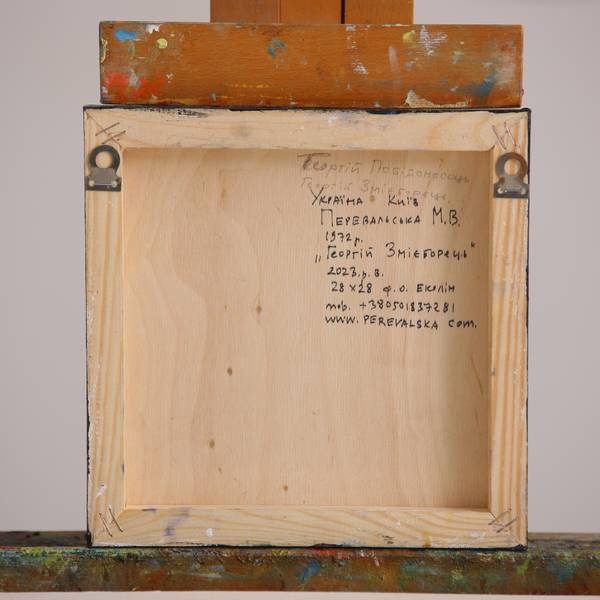 Георгій Побідоносець
Георгій Змієборець
Україна Київ
Перевальська М.В.
1972 р.
„Георгій Змієборець"
2023.р.в.
28 x 28 ф.о. еколін
mob. +380501837281
www. PEREVALSKA com.